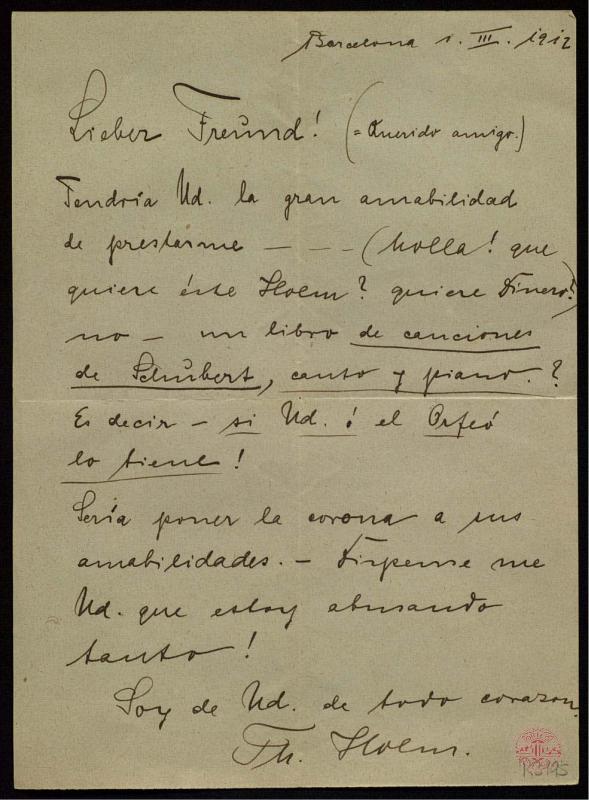 Barcelona 1. III. 1912
Lieber Freund! (= Querido amigo.)
Tendría Ud. la gran amabilidad
de prestarme — — — (holla! que
quiere éste Holm? quiere dinero?)
no — un libro de canciones
de Schubert, canto y piano.?
Es decir — si Ud. ó el Orfeó
lo tiene!
Sería poner la corona a sus
amabilidades. — Dispense me
Ud. que estoy abusando
tanto!
Soy de Ud. de todo corazon.
Th. Holm.